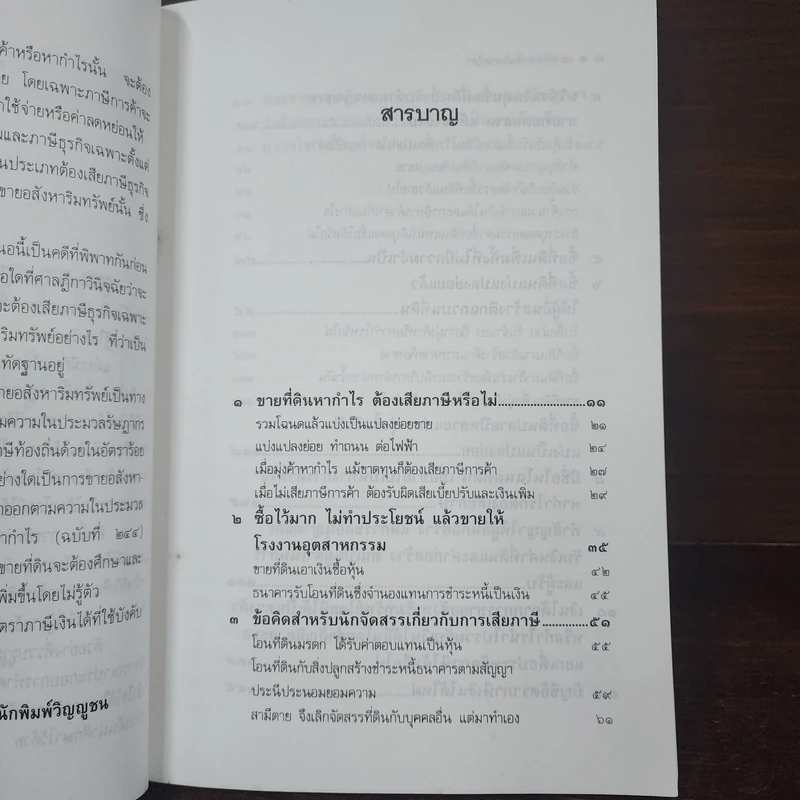 ค้าหรือหากำไรนั้น จะต้อง
โดยเฉพาะภาษีการค้าจะ
าใช้จ่ายหรือค่าลดหย่อนให้
มและภาษีธุรกิจเฉพาะตั้งแต่
นประเภทต้องเสียภาษีธุรกิจ
ขายอสังหาริมทรัพย์นั้น ซึ่ง
นอนี้เป็นคดีที่พิพาทกันก่อน
อใดที่ศาลฎีกาวินิจฉัยว่าจะ
จะต้องเสียภาษีธุรกิจเฉพาะ
ริมทรัพย์อย่างไร ที่ว่าเป็น
ทัดฐานอยู่
ายอสังหาริมทรัพย์เป็นทาง
มความในประมวลรัษฎากร
าษีท้องถิ่นด้วยในอัตราร้อย
ย่างใดเป็นการขายอสังหา-
าออกตามความในประมวล
กำไร (ฉบับที่ ๒๔๔)
ขายที่ดินจะต้องศึกษาและ
พิ่มขึ้นโดยไม่รู้ตัว
ตราภาษีเงินได้ที่ใช้บังคับ
นักพิมพ์วิญญูชน
สารบาญ
๑ ขายที่ดินหากำไร ต้องเสียภาษีหรือไม่............................๑๑
รวมโฉนดแล้วแบ่งเป็นแปลงย่อยขาย ๒๑
แบ่งแปลงย่อย ทำถนน ต่อไฟฟ้า ๒๔
เมื่อมุ่งค้าหากำไร แม้ขาดทุนก็ต้องเสียภาษีการค้า ๒๗
เมื่อไม่เสียภาษีการค้า ต้องรับผิดเสียเบี้ยปรับและเงินเพิ่ม ๒๙
๒ ซื้อไว้มาก ไม่ทำประโยชน์ แล้วขายให้
โรงงานอุตสาหกรรม ๓๕
ขายที่ดินเอาเงินซื้อหุ้น ๔๒
ธนาคารรับโอนที่ดินซึ่งจำนองแทนการชำระหนี้เป็นเงิน ๔๕
๓ ข้อคิดสำหรับนักจัดสรรเกี่ยวกับการเสียภาษี........................๕๑
โอนที่ดินมรดก ได้รับค่าตอบแทนเป็นหุ้น ๕๕
โอนที่ดินกับสิ่งปลูกสร้างชำระหนี้ธนาคารตามสัญญา
ประนีประนอมยอมความ ๕๙
สามีตาย จึงเลิกจัดสรรที่ดินกับบุคคลอื่น แต่มาทำเอง ๖๑